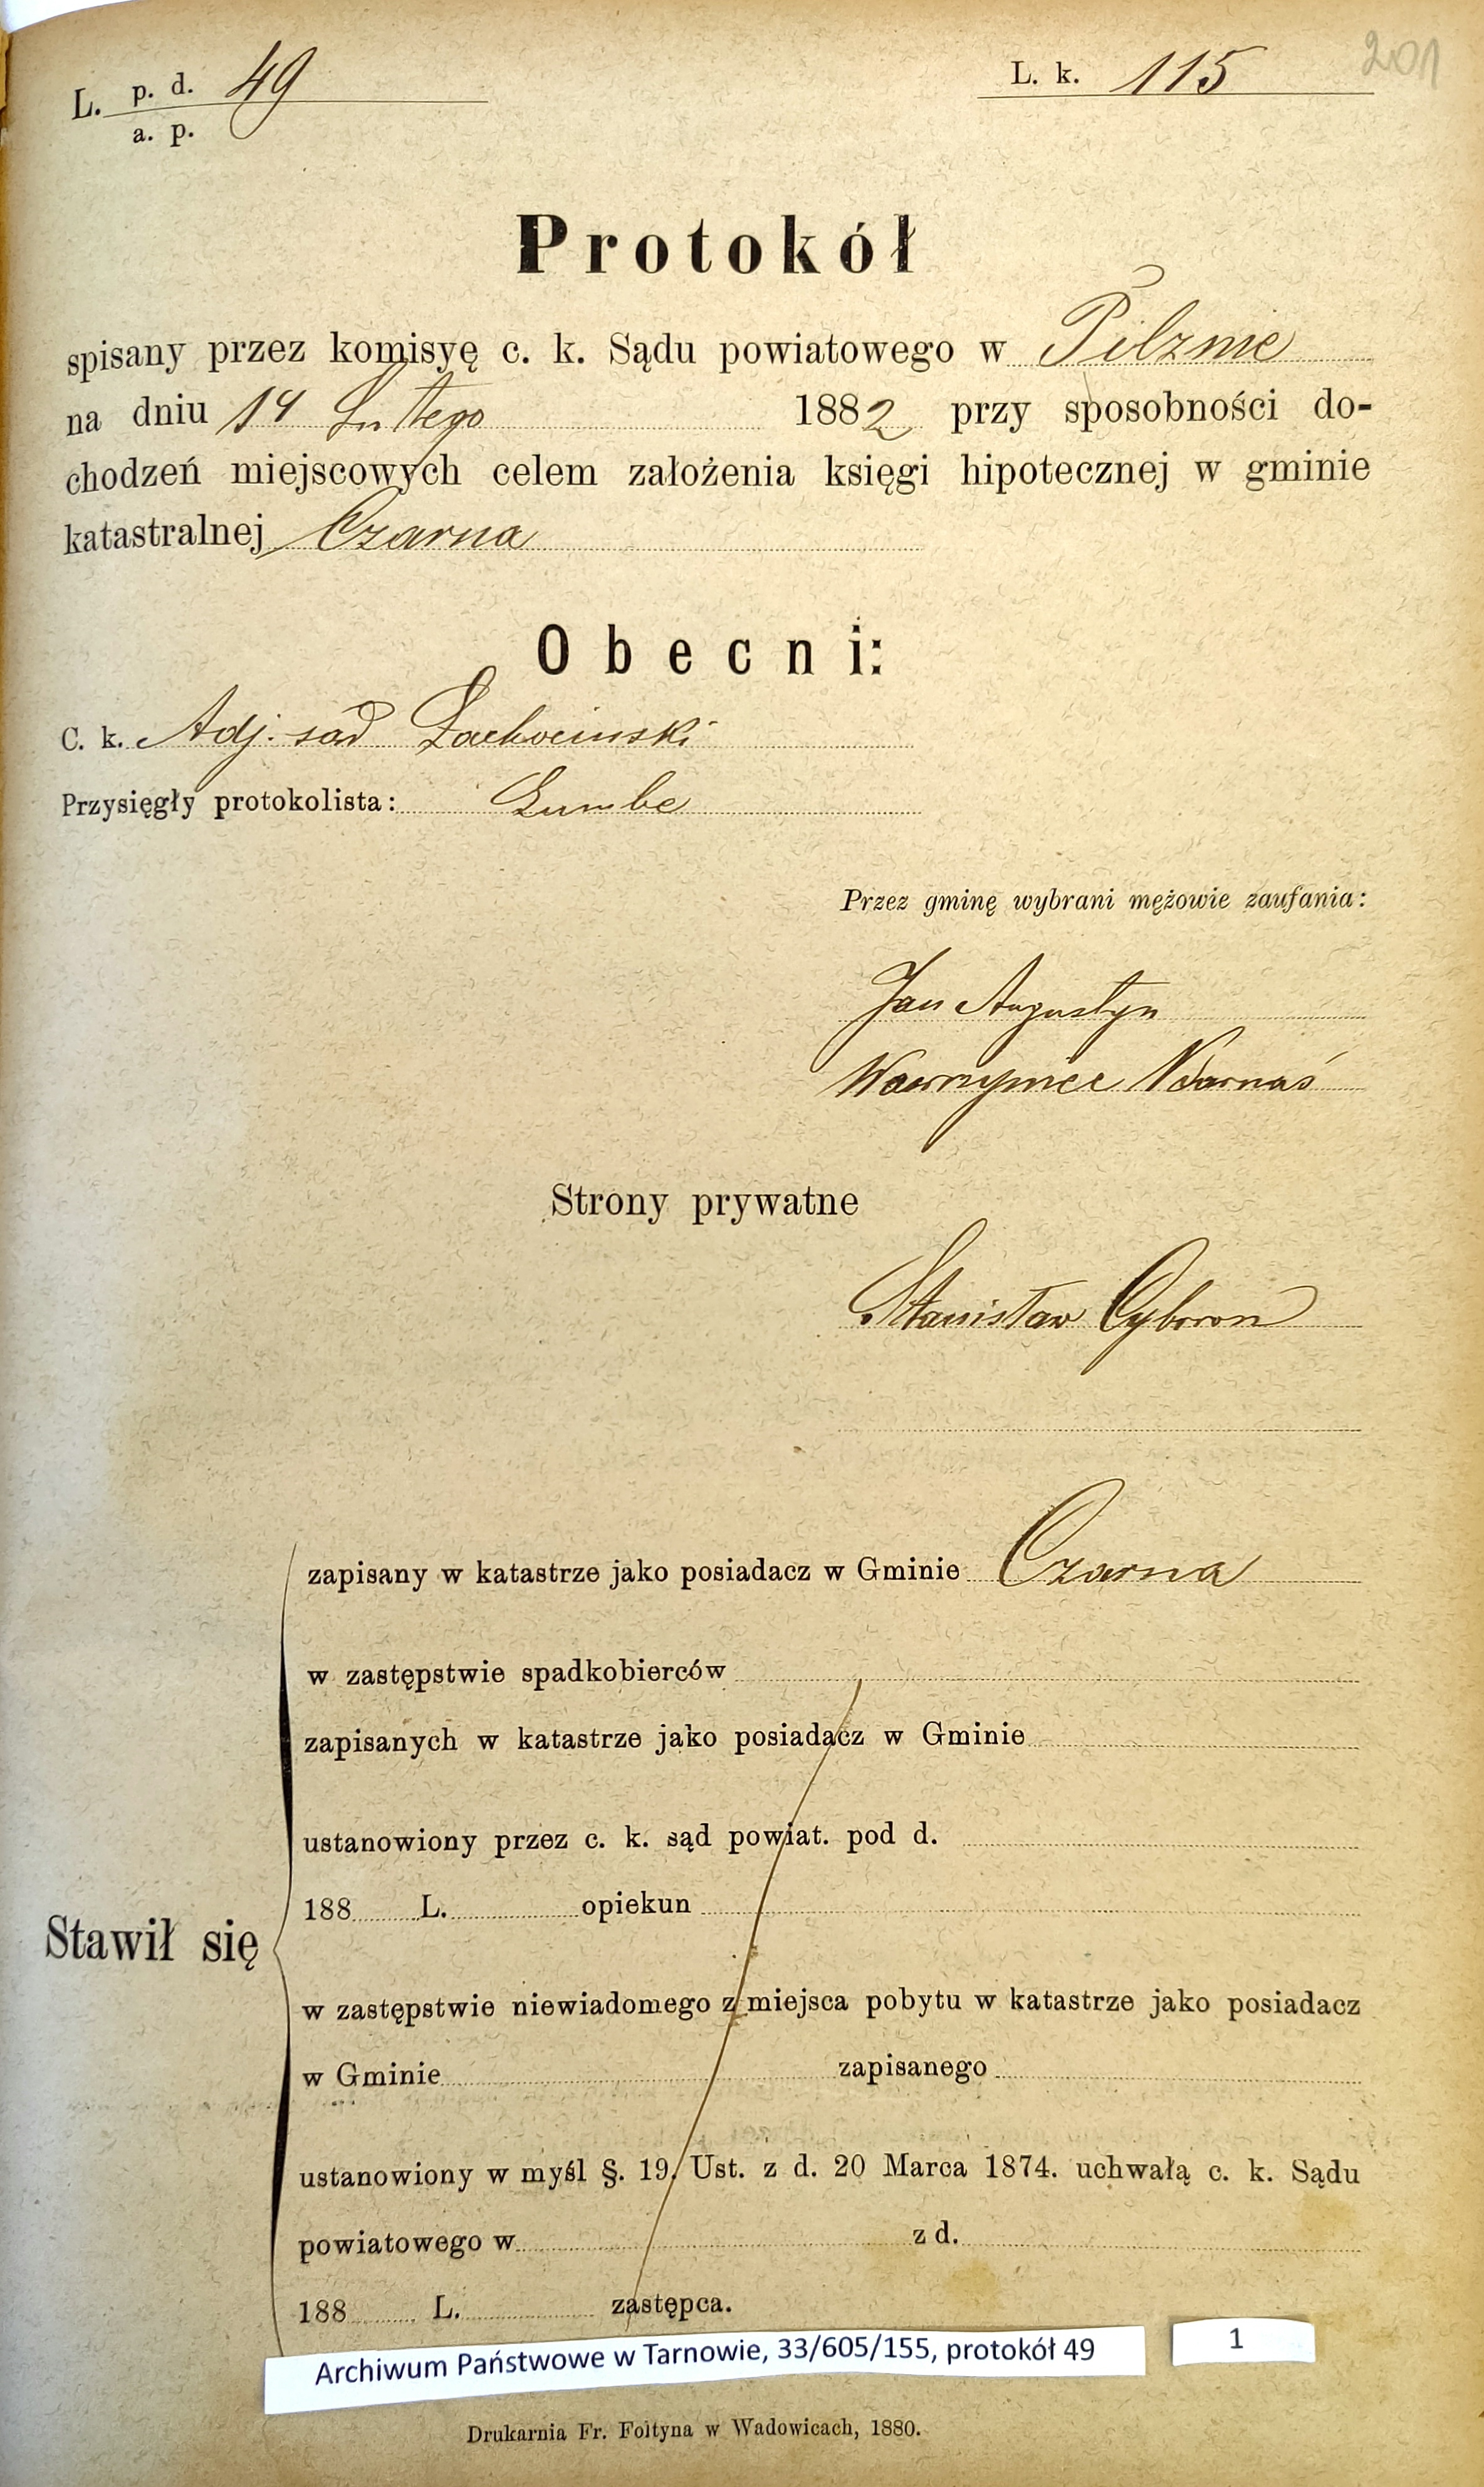 201
L. p. d. 49
a. p.
L. k. 115
Protokół
spisany przez komisyę c. k. Sądu powiatowego w Pilznie
na dniu 14 Lutego 1882 przy sposobności do-
chodzeń miejscowych celem założenia księgi hipotecznej w gminie
katastralnej Czarna
Obecni:
C. k. Adj. sąd
Przysięgły protokolista:
Przez gminę wybrani mężowie zaufania:
Jan Augustyn
Wawrzyniec
Strony prywatne
Stanisław Cyboron
zapisany w katastrze jako posiadacz w Gminie Czarna
w zastępstwie spadkobierców
zapisanych w katastrze jako posiadacz w Gminie
ustanowiony przez c. k. sąd powiat. pod d.
188 L. opiekun
Stawił się
w zastępstwie niewiadomego z miejsca pobytu w katastrze jako posiadacz
w Gminie zapisanego
ustanowiony w myśl §. 19. Ust. z d. 20 Marca 1874. uchwałą c. k. Sądu
powiatowego w z d.
188 L. zastępca.
Archiwum Państwowe w Tarnowie, 33/605/155, protokół 49
1
Drukarnia Fr. Foltyna w Wadowicach, 1880.